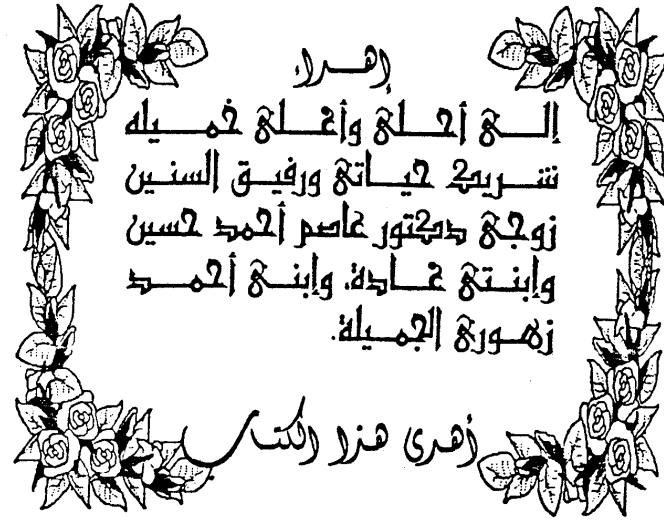 إهداء
إلى أحلى وأغلى خميله
شريك حياتى ورفيق السنين
زوجى دكتور عاصم أحمد حسين
وإبنتى غادة، وإبنى أحمد
زهورى الجميلة.
أهدى هذا الكتاب